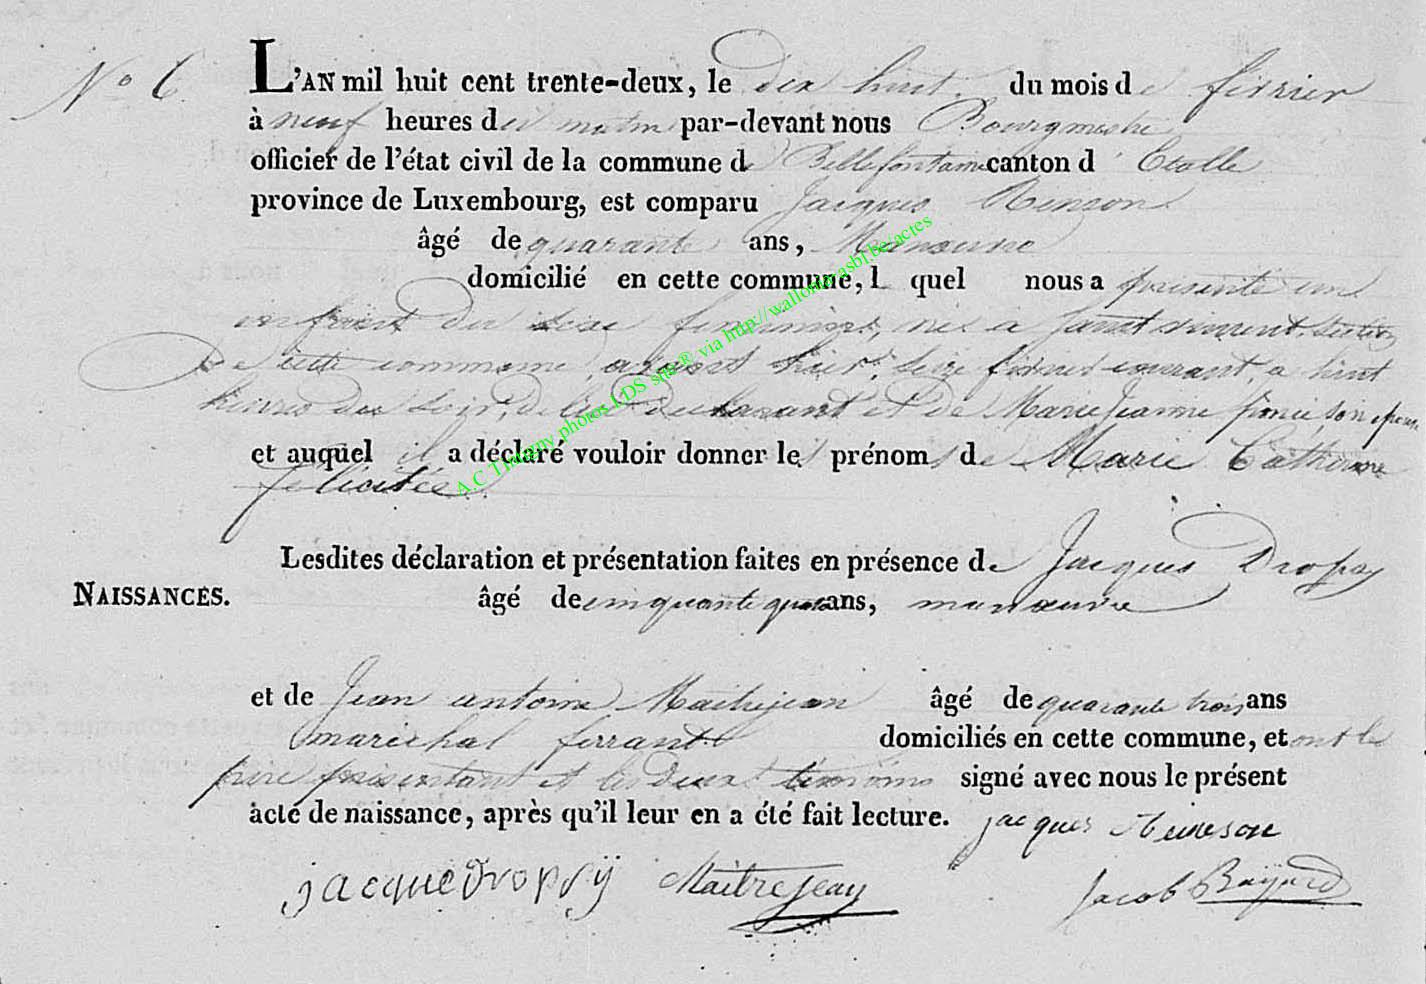 No 6
L'AN mil huit cent trente-deux, le dix huit du mois de fevrier
à neuf heures du matin par-devant nous Bourgmestre
officier de l'état civil de la commune de Bellefontaine canton d'Etalle
province de Luxembourg, est comparu Jacques
âgé de quarante ans, Manœuvre
domicilié en cette commune, l quel nous a présenté un
enfant du sexe feminin, née a Saint vincent, section
de cette commune, avant hier, seize fevrier courant a huit
heures du soir, de lui declarant et de Marie Jeanne son epouse
et auquel il a déclaré vouloir donner les prénoms de Marie Catherine
félicitée
Lesdites déclaration et présentation faites en présence de Jacques Dropsy
NAISSANCES.
âgé de cinquante quatre ans, manœuvre
et de Jean antoine Maitrejean âgé de quarante trois ans
maréchal ferrant domiciliés en cette commune, et ont le
pere présentant et les deux témoins signé avec nous le présent
acte de naissance, après qu'il leur en a été fait lecture. jacques
jacque Dropsÿ Maitrejean Jacob Bayard
A.C Tintigny photos LDS sur ® via http://wallonia.asbl.be/actes